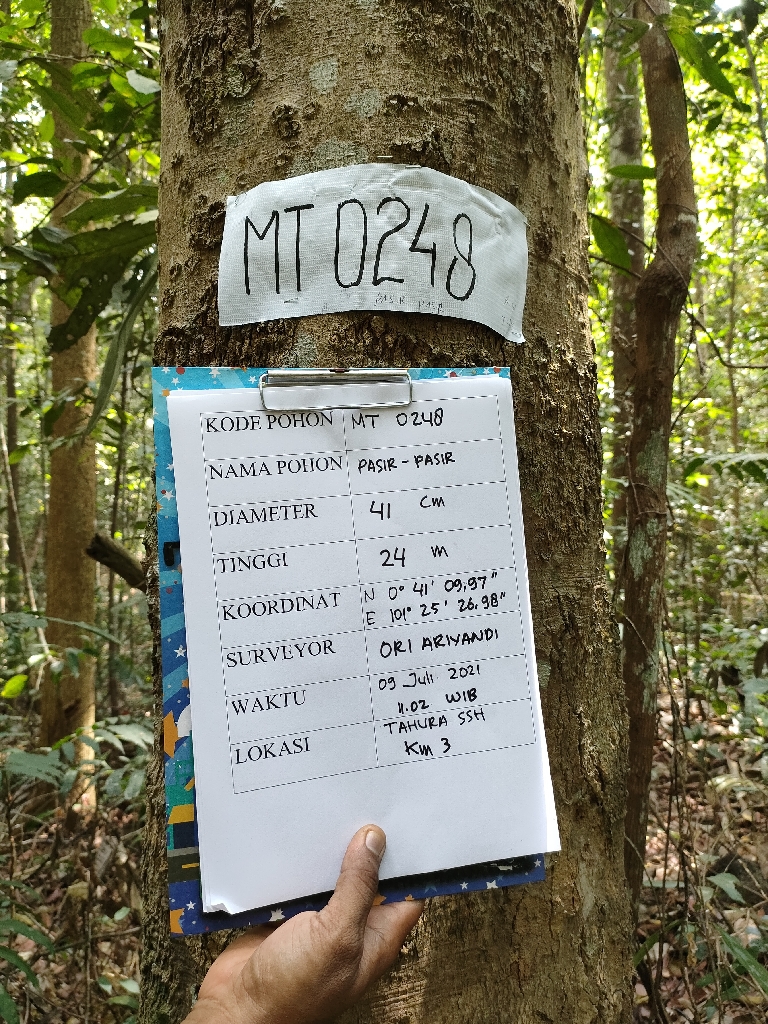 MT 0248
PASIR PASIR
KODE POHON MT 0248
NAMA POHON PASIR - PASIR
DIAMETER 41 Cm
TINGGI 24 m
KOORDINAT N 0° 41' 09,97"
E 101° 25' 26,98"
SURVEYOR ORI ARIYANDI
WAKTU 09 Juli 2021
11.02 WIB
LOKASI TAHURA SSH
Km 3